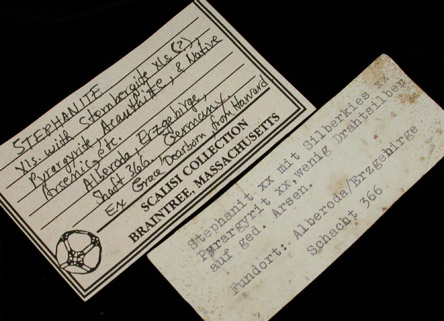 STEPHANITE
xls. with Sternbergite xls (?),
Pyrargyrite, Acanthite, & Native
Arsenic, etc.
Alberoda, Erzgebirge,
Shaft 366, Germany
Ex Grace Dearborn, from Harvard
SCALISI COLLECTION
BRAINTREE, MASSACHUSETTS
Stephanit xx mit Silberkies xx
Pyrargyrit xx, wenig Drahtsilber
auf ged. Arsen.
Fundort: Alberoda/Erzgebirge
Schacht 366